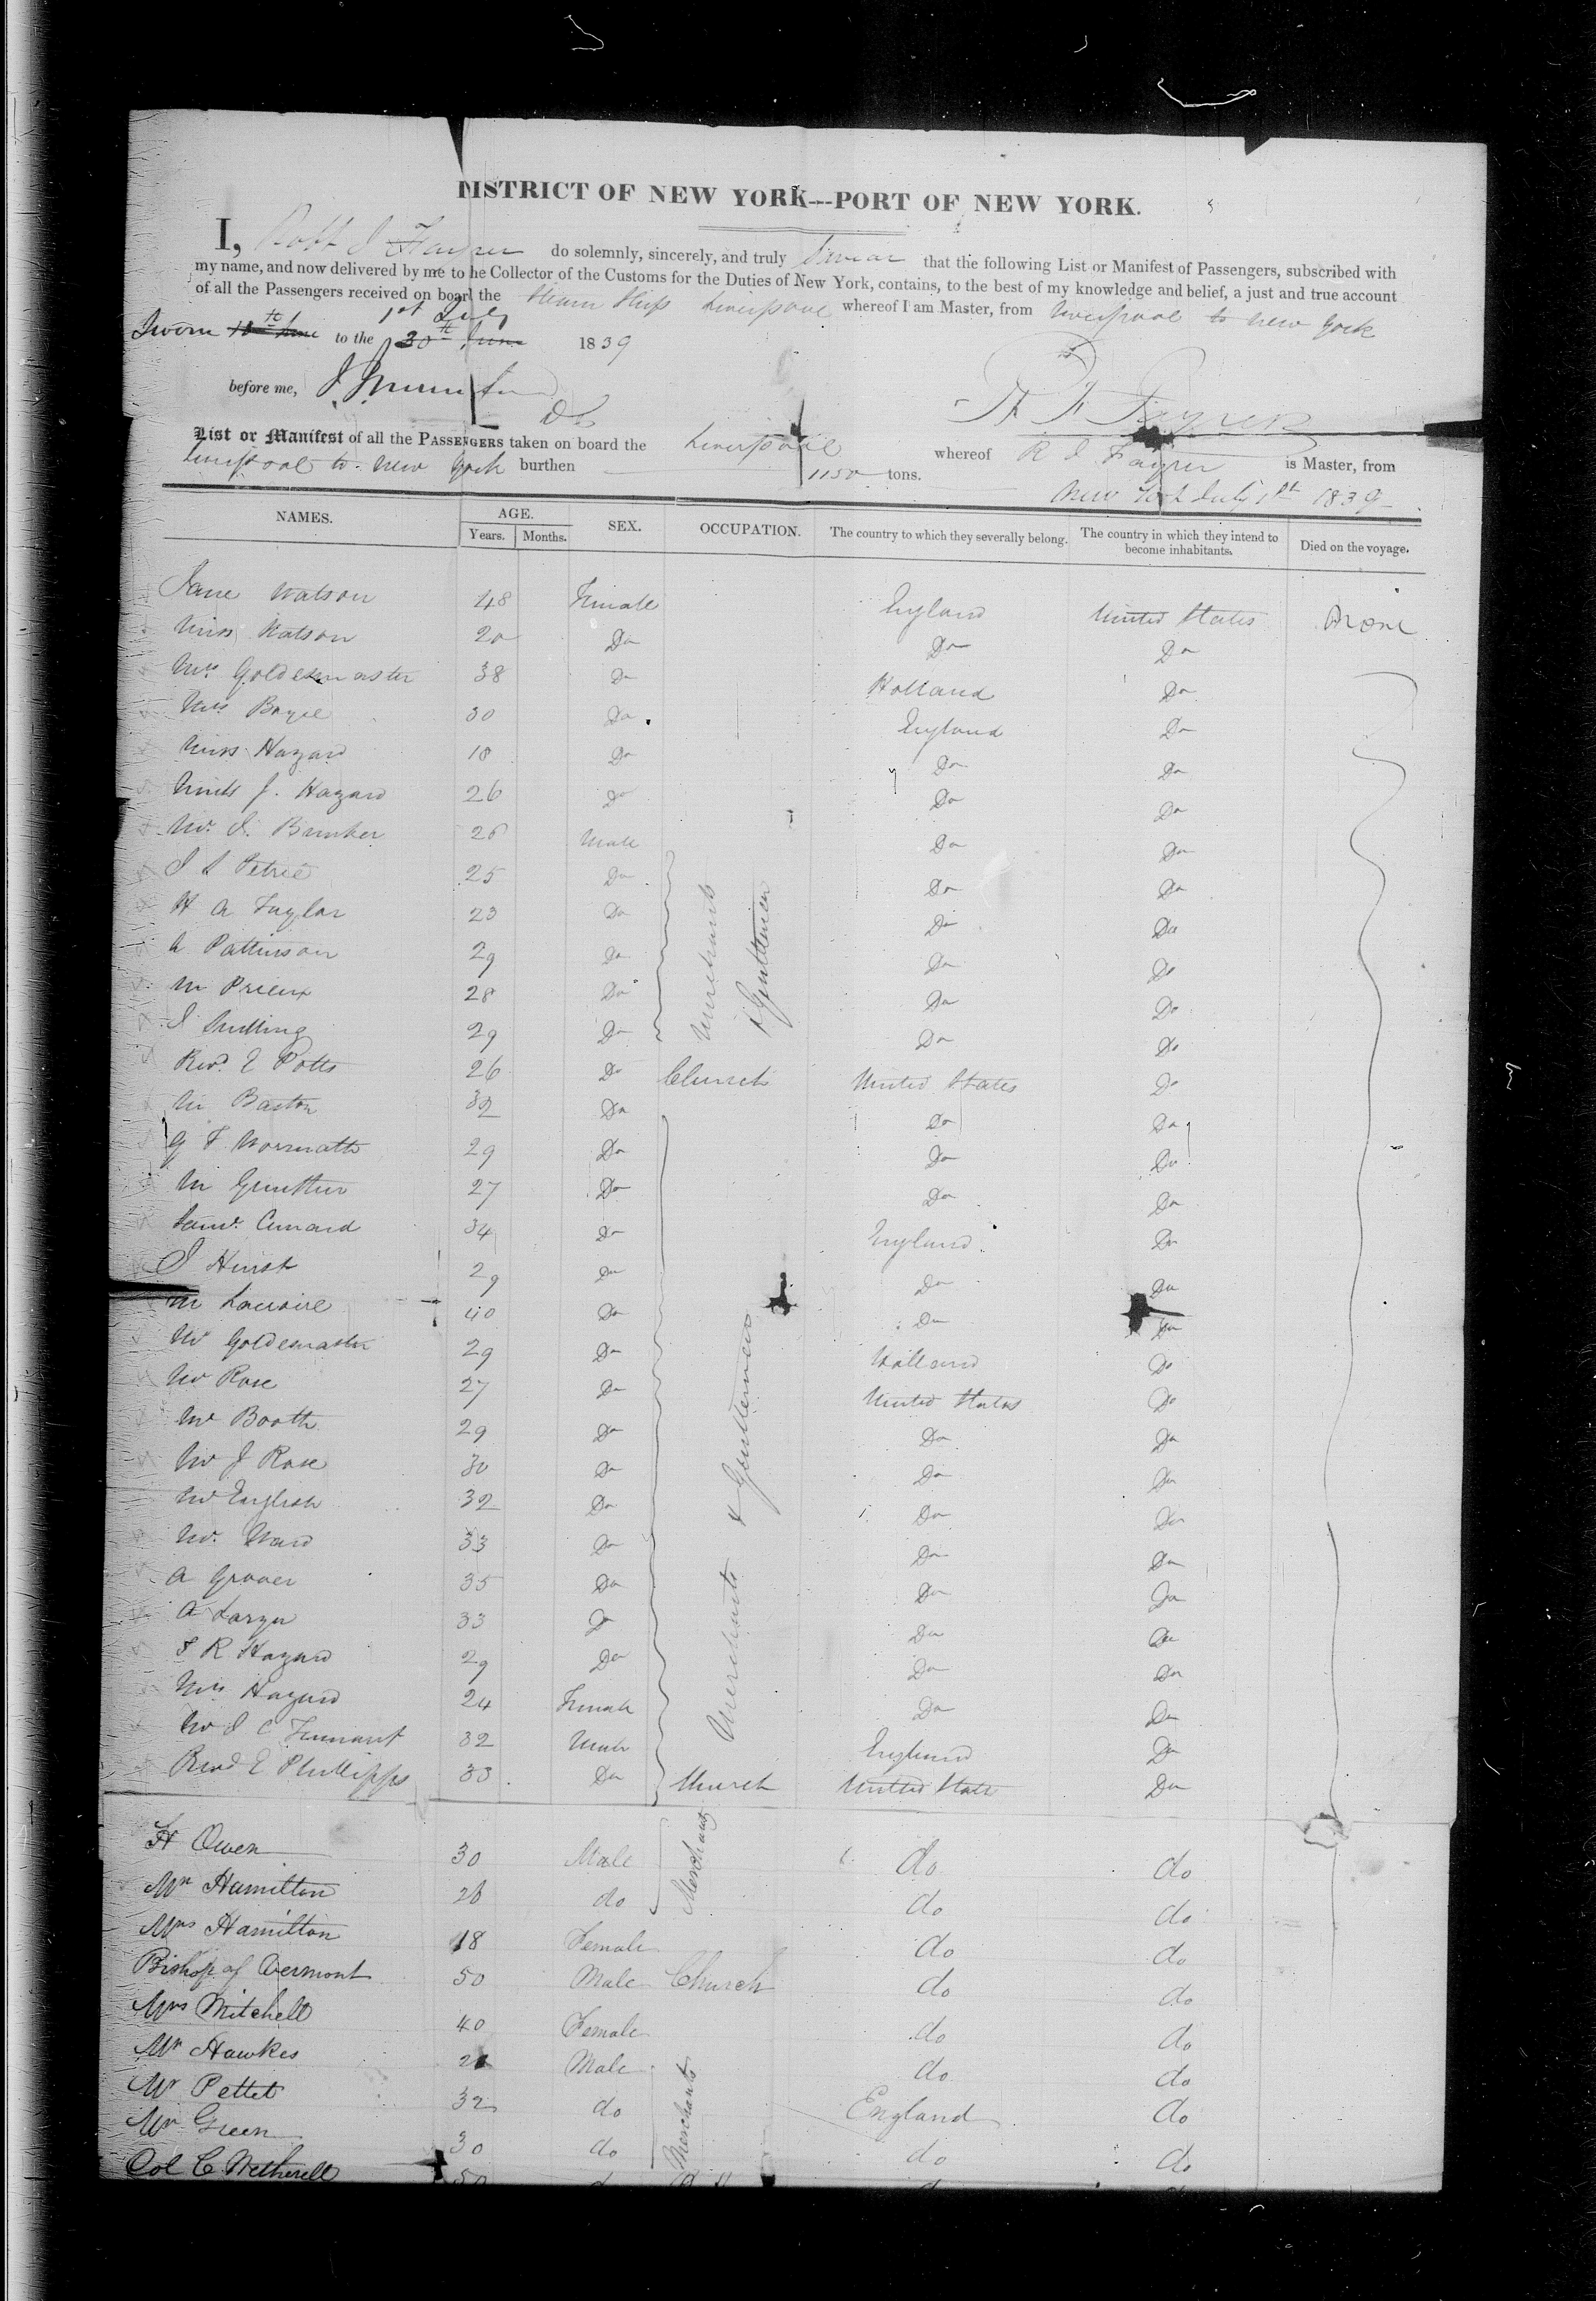 DISTRICT OF NEW YORK---PORT OF NEW YORK.
I, Robt J Fayrer do solemnly, sincerely, and truly Swear that the following List or Manifest of Passengers, subscribed with
my name, and now delivered by me to the Collector of the Customs for the Duties of New York, contains, to the best of my knowledge and belief, a just and true account
of all the Passengers received on board the Steam Ship Liverpool whereof I am Master, from Liverpool to New York
Sworn 18th June to the 30th June 1st July 1839
before me,
R J Fayrer
List or Manifest of all the PASSENGERS taken on board the Liverpool whereof R J Fayrer is Master, from
Liverpool to New York burthen 1150 tons.
New York July 1st 1839
NAMES. AGE. Years. Months. SEX. OCCUPATION. The country to which they severally belong. The country in which they intend to become inhabitants. Died on the voyage.
Jane Watson 48 Female England United States None
Miss Watson 20 Do Do Do
Mrs Goldesmaster 38 Do Holland Do
Mrs Boyce 30 Do England Do
Miss Hazard 18 Do Do Do
J. Hazard 26 Do Do Do
Mr. J. Bunker 26 Male Do Do
J S Petrie 25 Do Do Do
H A Taylor 23 Do Merchants & Gentlemen Do Do
A Pattinson 29 Do Do Do
M Prieux 28 Do Do Do
J Snelling 29 Do Do Do
Revd. E Potts 26 Do Church United States Do
M Barton 32 Do Do Do
G F Wormath 29 Do Do Do
M Gunther 27 Do Do Do
Saml. Cunard 34 Do England Do
J Hurst 29 Do Do Do
M 40 Do Do Do
Mr Goldesmaster 29 Do Holland Do
Mr Rose 27 Do United States Do
Mr Booth 29 Do Merchants & Gentlemen Do Do
Mr J Rose 30 Do Do Do
Mr English 32 Do Do Do
Mr. Ward 33 Do Do Do
A Grover 35 Do Do Do
A 33 Do Do Do
R Hazard 29 Do Do Do
Mrs Hazard 24 Female Do Do
Mr J C Tennant 32 Male England Do
Revd E Phillipps 33 Do Church United State Do
H Owen 30 Male Merchants do do
Mr Hamilton 26 do do do
Mrs Hamilton 18 Female do do
Bishop of Vermont 50 Male Church do do
Mrs Mitchell 40 Female do do
Mr Hawkes 21 Male do do
Mr Pettet 32 do Merchants England do
Mr Green 30 do do do
Col C Wetherell 50